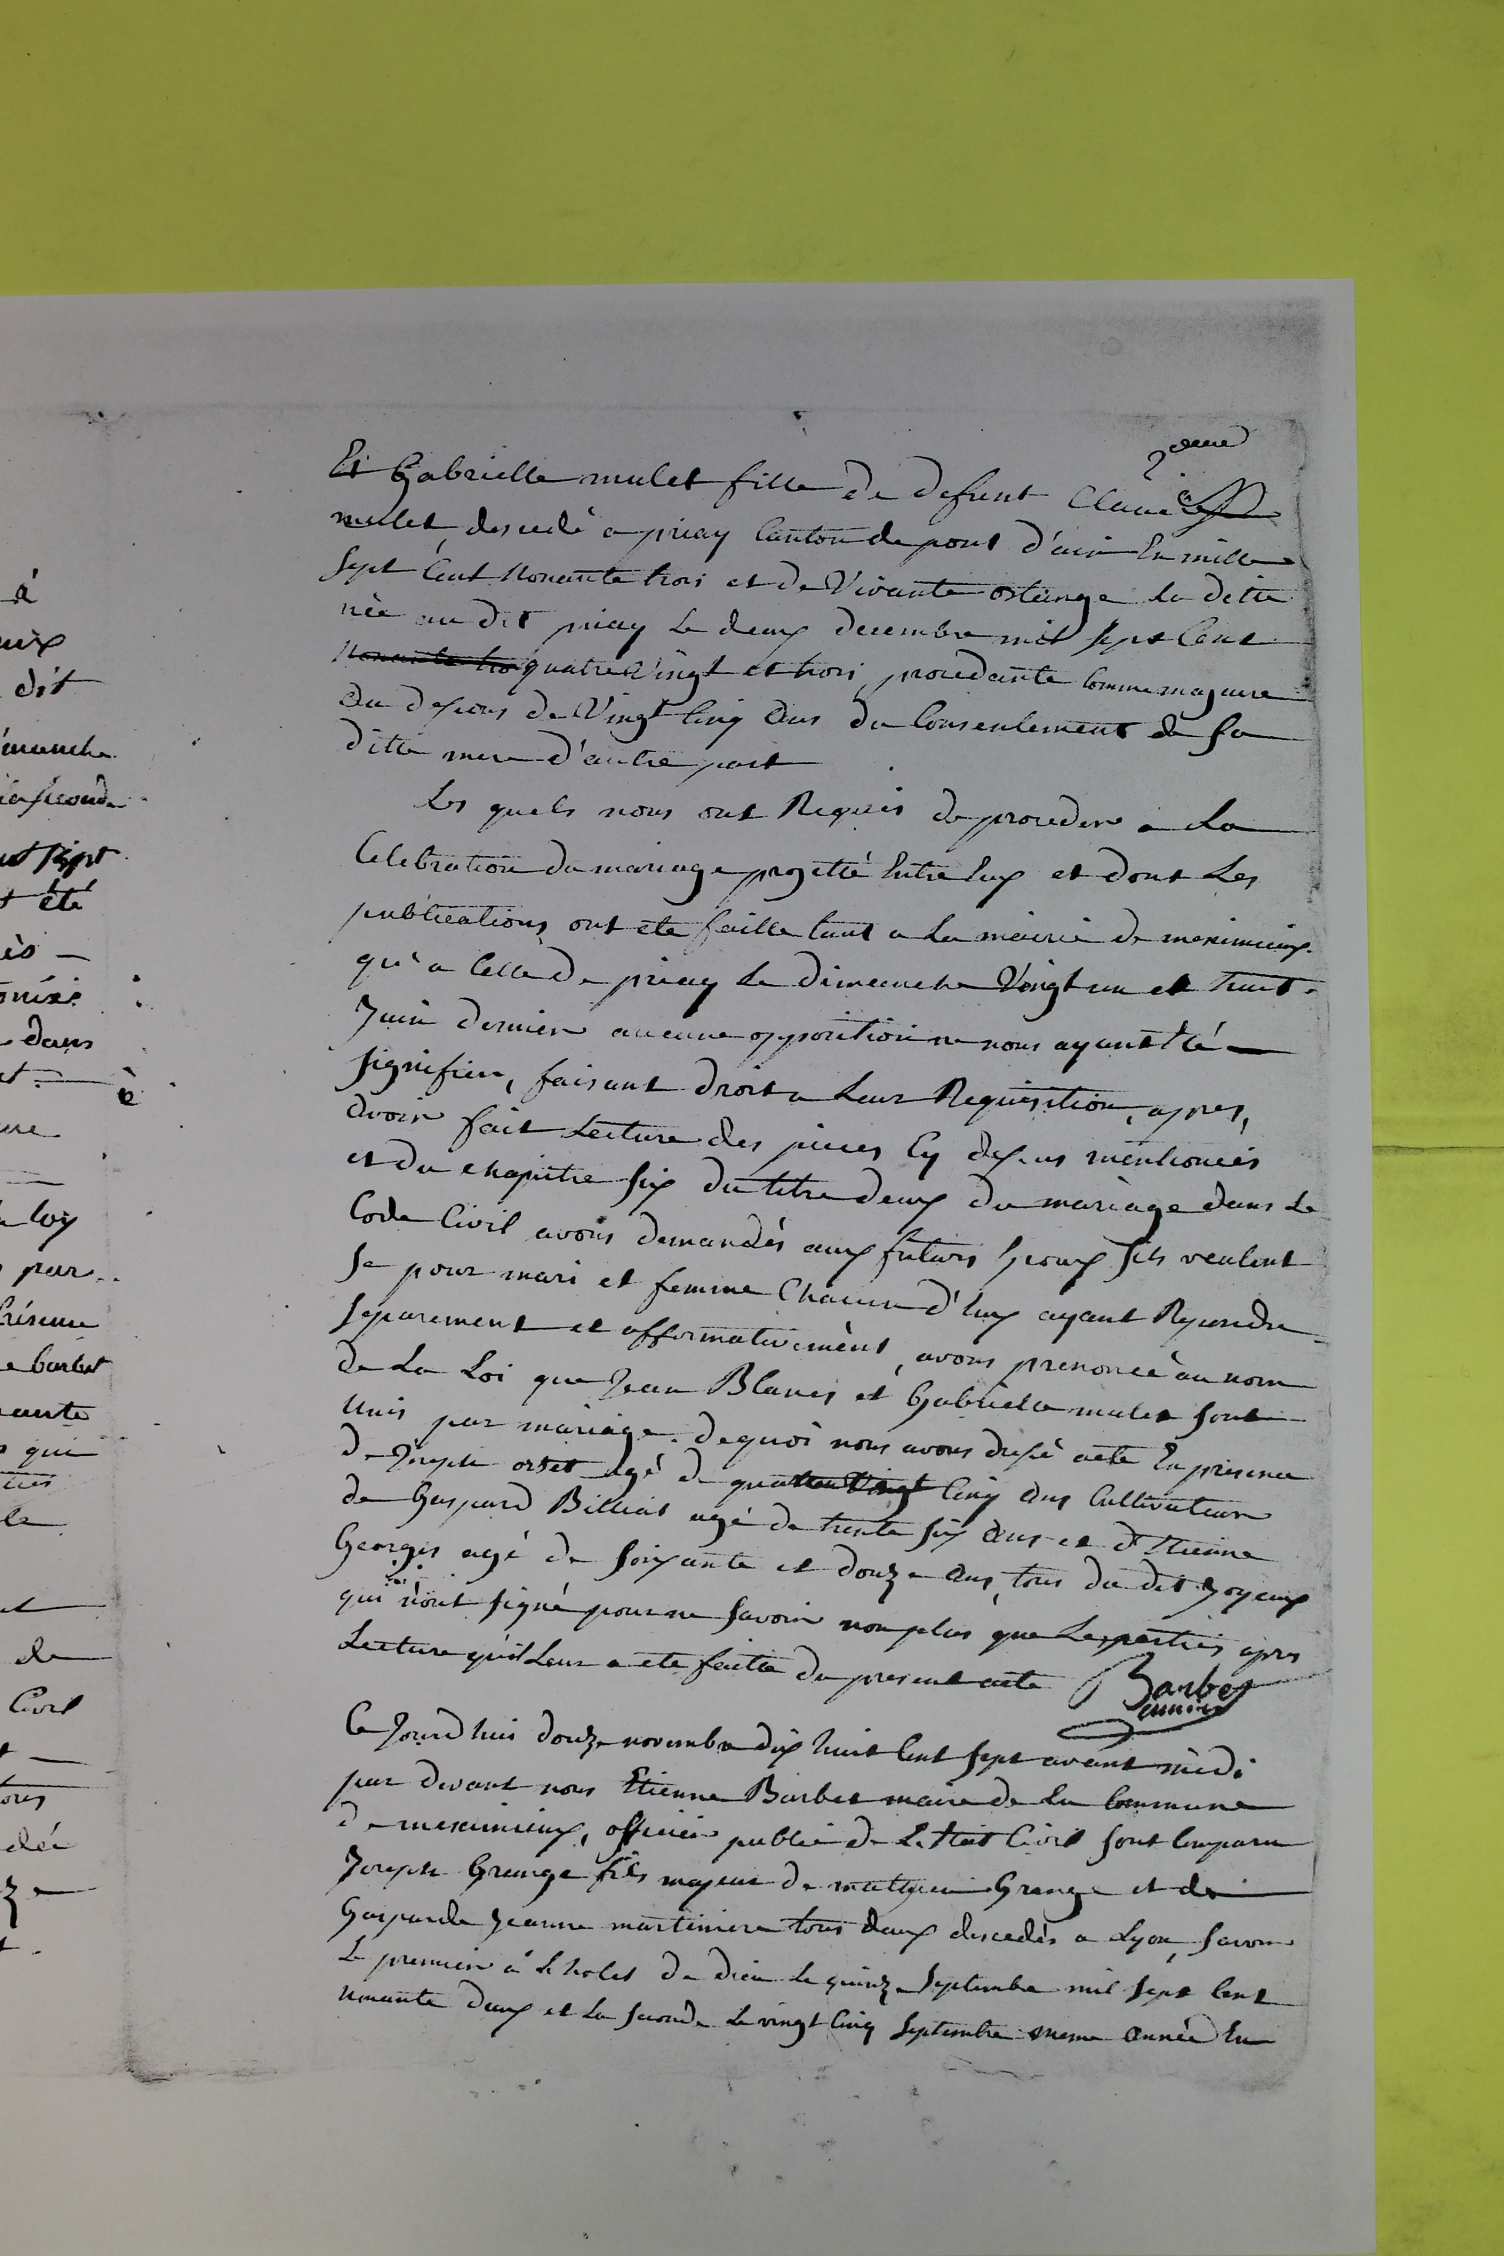 2eme
Et Gabrielle mulet fille de defunt Claude
mulet, descedé a priay Canton de pont d'ain En mille
sept Cent Nonante trois et de Vivante ostange la ditte
née au dit priay le deux decembre mil sept Cent
nonante tro quatre Vingt et trois, procedante Comme majeure
au dessous de Vingt Cinq ans du Consentement de sa
ditte mere d'autre part
Les quels nous ont Requis de proceder a La
Celebration du mariage projetté Entre Eux et dont Les
publications ont ete faitte tant a La mairie de meximieux
qu'a Celle de priay Le dimanche Vingt un et
Juin dernier aucune opposition ne nous ayant Eté
signifiée, faisant droit a Leur Requisition, apres,
avoir fait Lecture des pieces Cy dessus mentionées
et du chapitre six du titre deux du mariage dans Le
Code Civil avons demandés aux futurs Epoux sils veulent
se pour mari et femme Chacun d'Eux ayant Repondu
separement et affirmativement, avons prenoncé au nom
de La Loi que Jean Blanes et Gabrielle mulet sont
Unis par mariage. dequoi nous avons dressé acte En presence
de Joseph orset agé de Vingt Cinq ans Cultivateur
de Gaspard Billiat agé de trente six ans et d'Etienne
Georges agé de soixante et douze ans, tous du dit Joyeux
qui n'ont signé pour ne savoir non plus que Les parties apres
Lecture qu'il Leur a ete faitte du present acte Barbet
maire
Ce Jourd'hui douze novembre dix huit Cent sept avant midi
par devant nous Etienne Barbet maire de La Commune
de meximieux, officier public de L'Etat Civil sont Comparu
Joseph Grange fils majeur de mathieu Grange et de
Gasparde Jeanne martiniere tous deux descedés a Lyon, savoir
Le premier a L'hotel de dieu Le quinze septembre mil sept Cent
nonante deux et La seconde Le vingt Cinq septembre meme année En
à
eux
dit
seconde
été
ès
dans
è
loy
par
barbet
qui
le
de
Civil